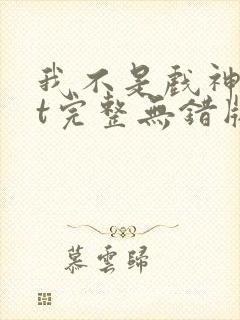 我不是戲神
t完整無錯版
慕雲歸